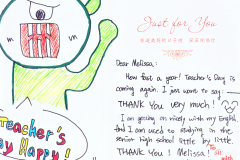 Just for You
Dear Melissa:
How fast a year! Teacher's Day is
coming again. I just want to say:
THANK YOU very much!
I am getting on nicely with my English
and I am used to studying in the
senior high school little by little.
THANK YOU! Melissa!
Teacher's
Day Happy!